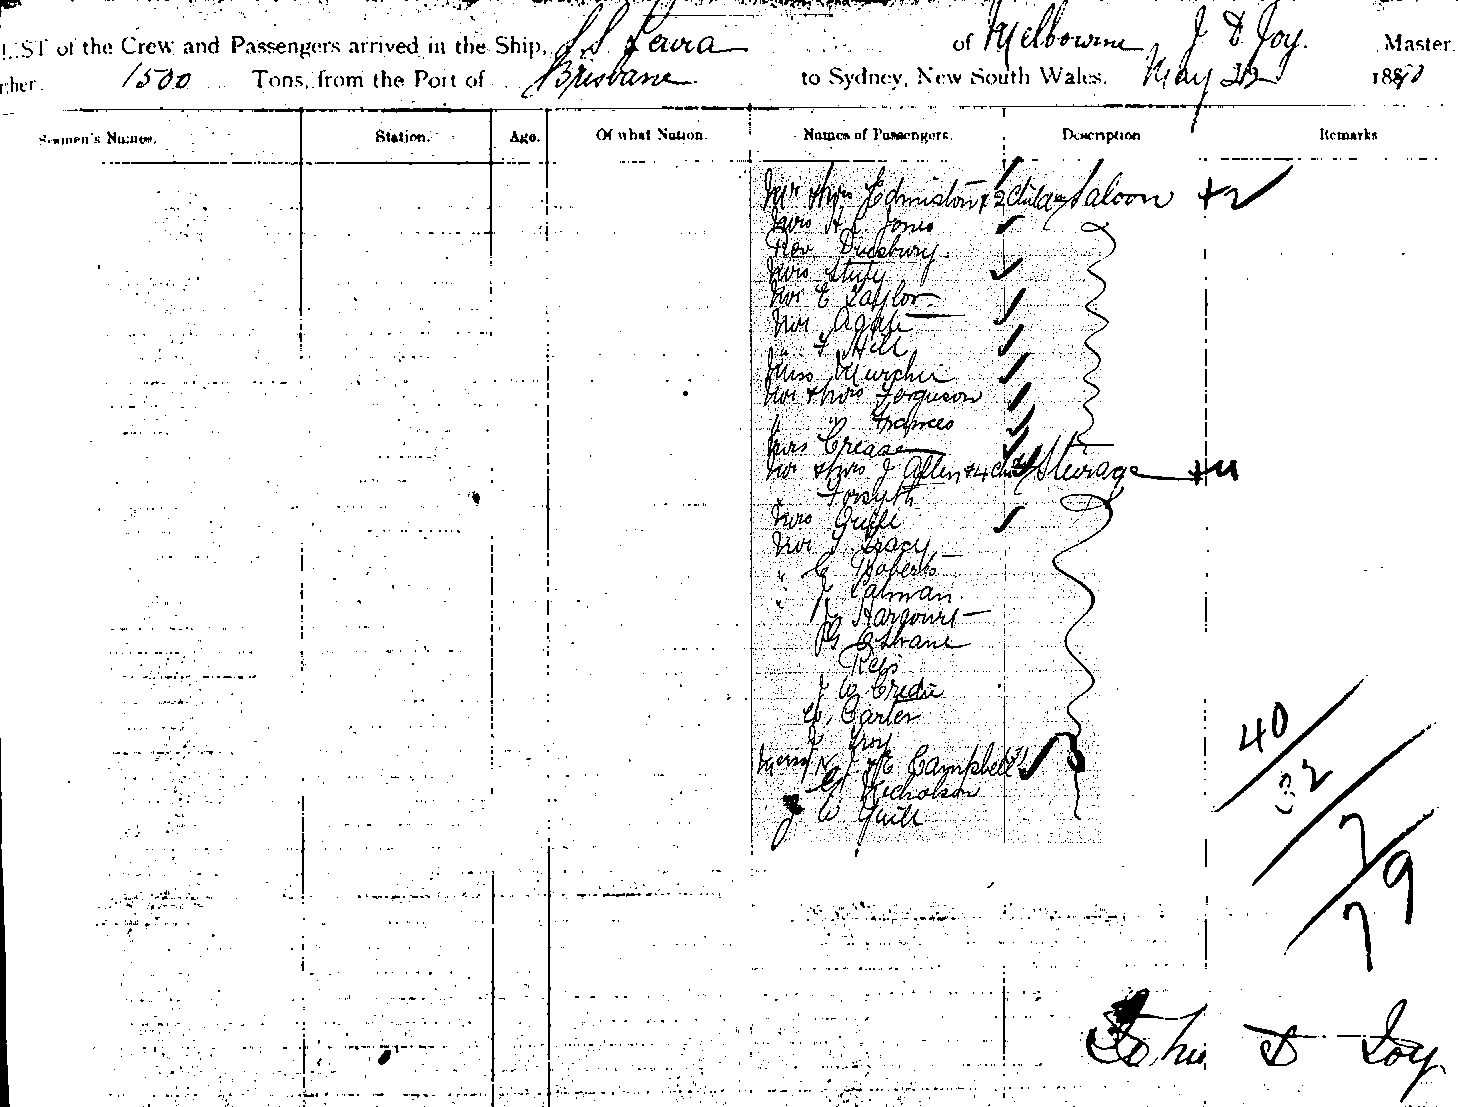 LIST of the Crew and Passengers arrived in the Ship, S.S. Leura of Melbourne J D Joy. Master
1500 Tons, from the Port of Brisbane to Sydney, New South Wales. May 22 1880
Seamen's Names. Station. Age. Of what Nation. Names of Passengers. Description Remarks
Mr & Mrs Edmiston & 2 Child Saloon +2
Mrs H. Jones
Rev Duesbury
Mrs
Mr E Taylor
Mr Agate
" F Hill
Miss Murphie
Mr & Mrs Ferguson
" " Frances
Mrs Crease
Mr & Mrs J Allen & 4 Ch Steerage +4
Forsyth
Mrs Quill
Mr J Tracy
" G Roberts
" J Calman
Harcourt
G
Rees
J W Credie
W. Carter
Troy
Mess & E Campbell
G Nicholson
J W Quill
40
32
7
79
John D Joy